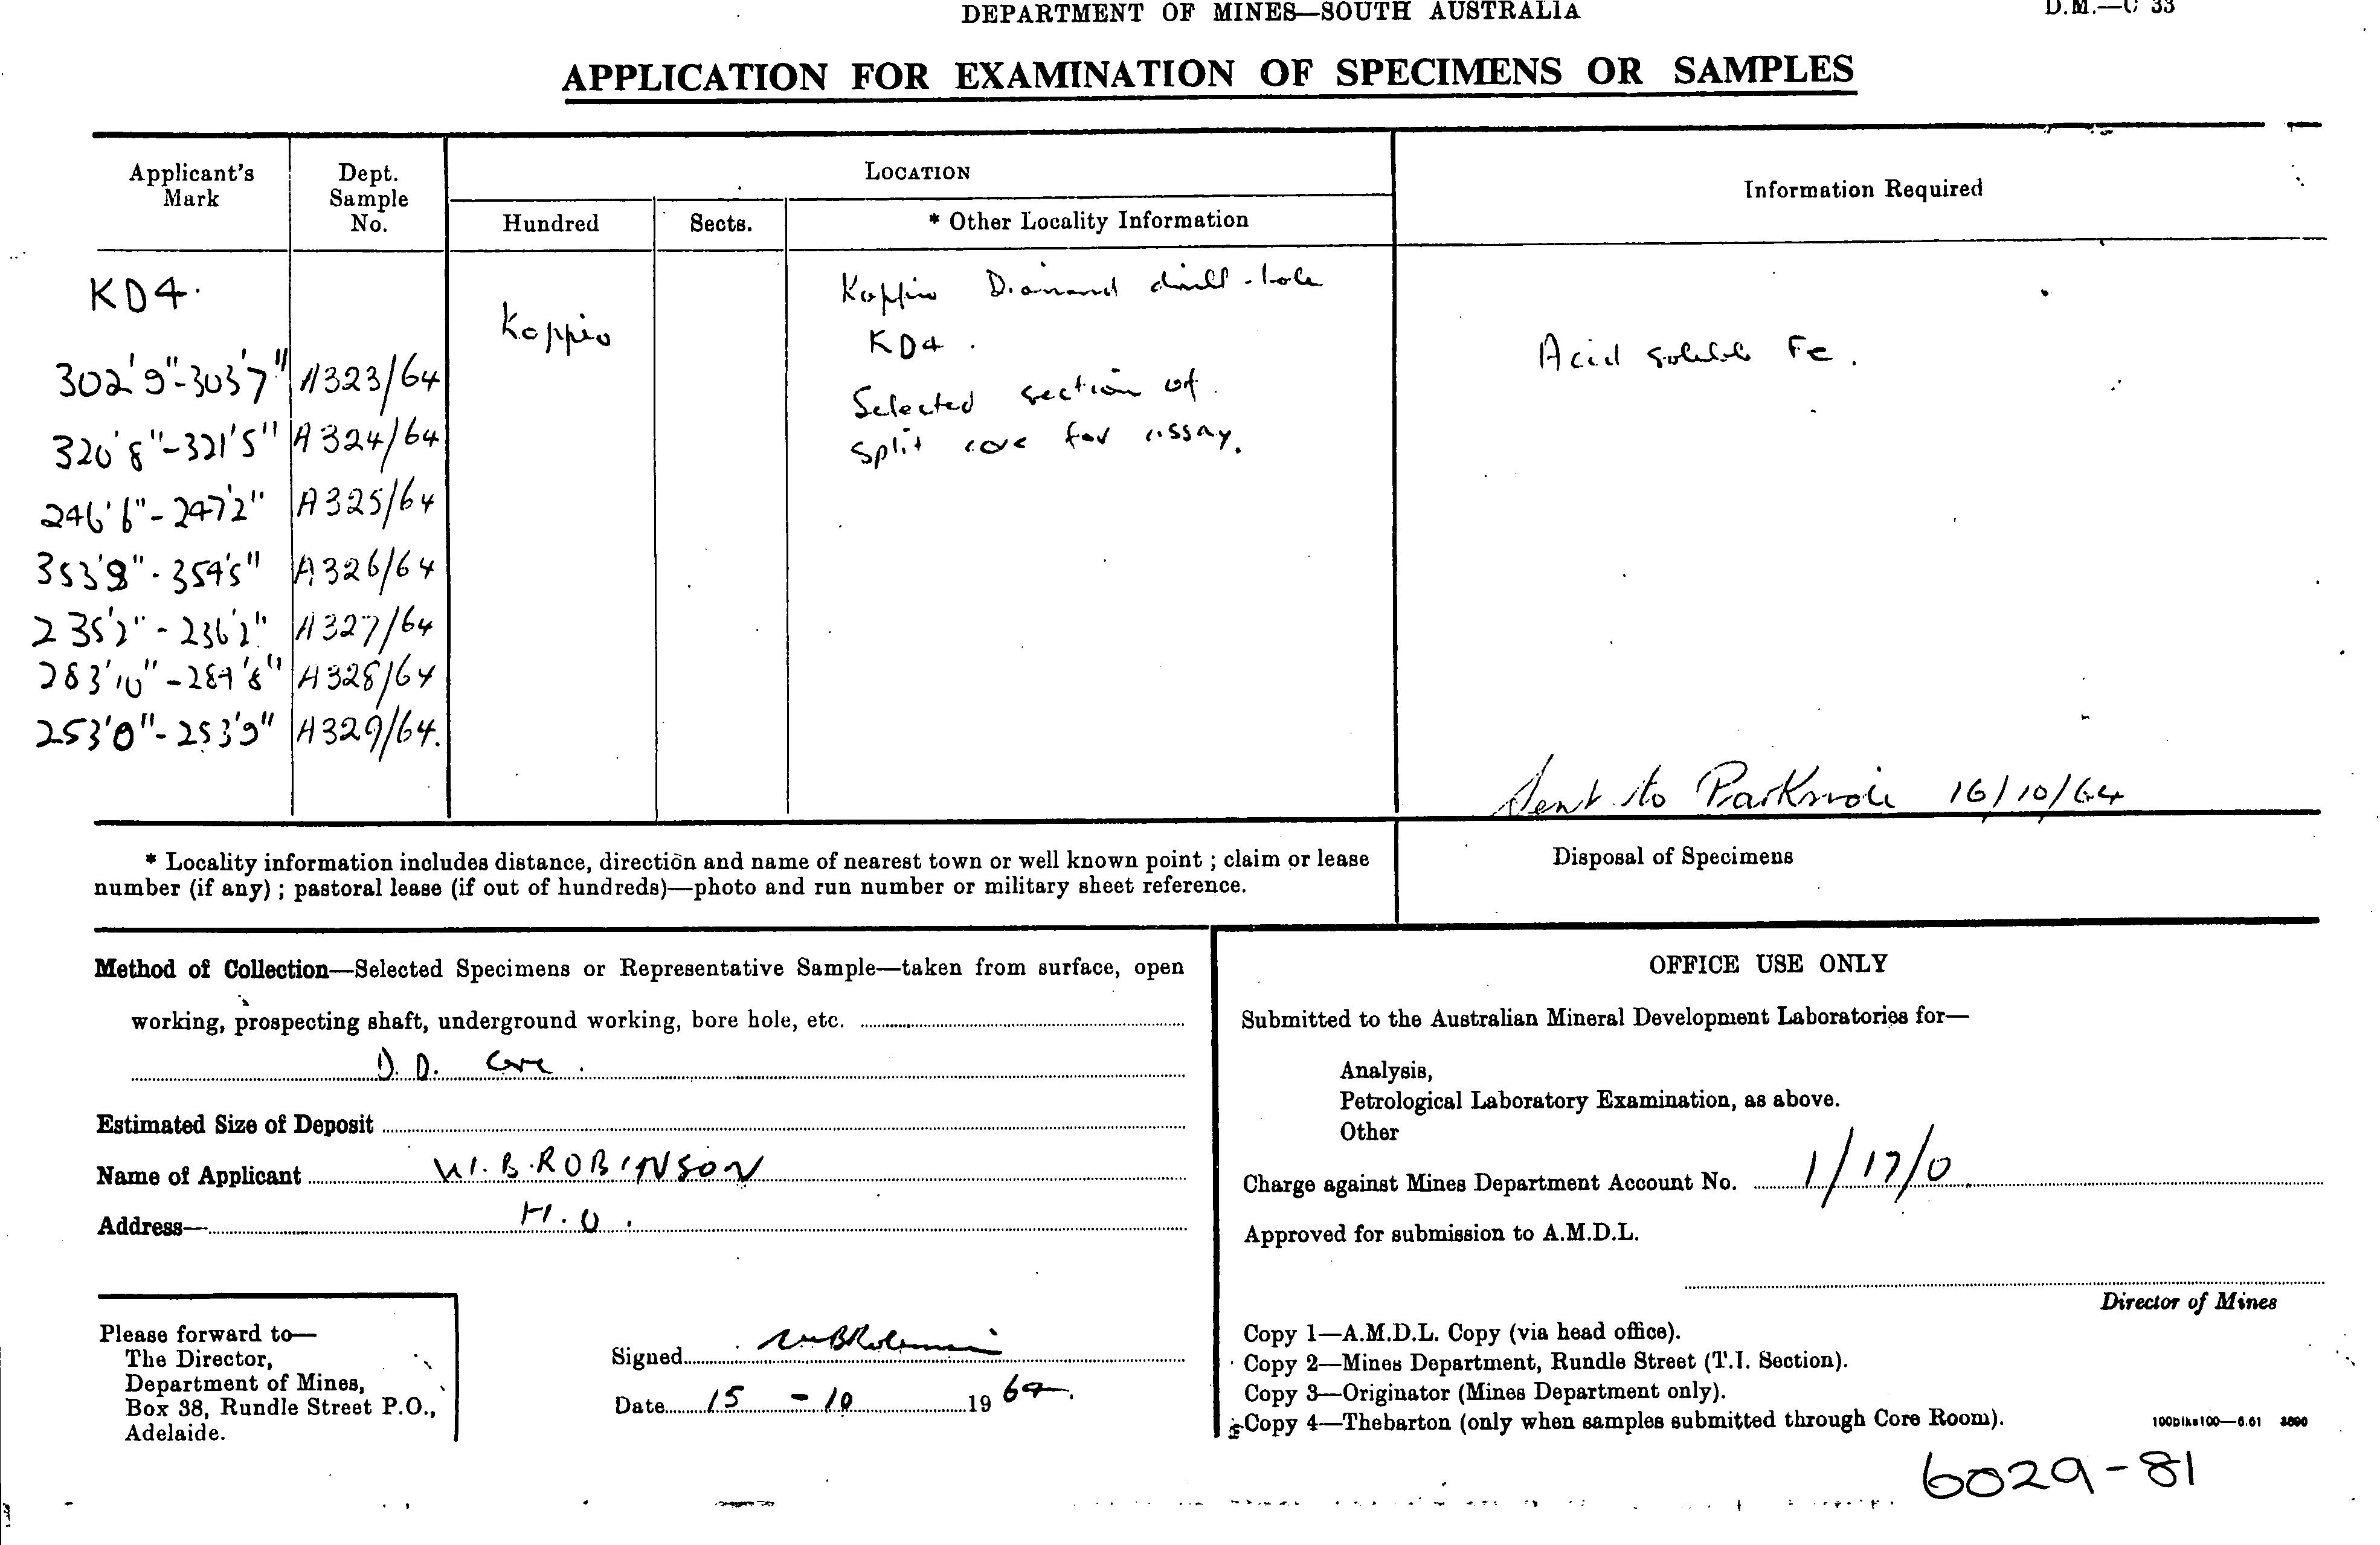 DEPARTMENT OF MINES—SOUTH AUSTRALIA
D.M.—C 33
APPLICATION FOR EXAMINATION OF SPECIMENS OR SAMPLES
Applicant's Mark
Dept. Sample No.
LOCATION
Hundred
Sects.
* Other Locality Information
Information Required
KD4.
Koppio
Koppio Diamond drill-hole
KD4.
Selected section of
split core for assay.
Acid soluble Fe.
302'9"-303'7" A323/64
320'8"-321'5" A324/64
246'6"-247'2" A325/64
353'8"-354'5" A326/64
235'2"-236'2" A327/64
283'10"-284'8" A328/64
253'0"-253'9" A329/64.
Sent to Parkside 16/10/64
* Locality information includes distance, direction and name of nearest town or well known point ; claim or lease
number (if any) ; pastoral lease (if out of hundreds)—photo and run number or military sheet reference.
Disposal of Specimens
Method of Collection—Selected Specimens or Representative Sample—taken from surface, open
working, prospecting shaft, underground working, bore hole, etc.
D.D. Core.
Estimated Size of Deposit
Name of Applicant W.B.ROBINSON
Address— H.O.
Please forward to—
The Director,
Department of Mines,
Box 38, Rundle Street P.O.,
Adelaide.
Signed WBRobinson
Date 15 - 10 1964.
OFFICE USE ONLY
Submitted to the Australian Mineral Development Laboratories for—
Analysis,
Petrological Laboratory Examination, as above.
Other
Charge against Mines Department Account No. 1/17/0.
Approved for submission to A.M.D.L.
Director of Mines
Copy 1—A.M.D.L. Copy (via head office).
Copy 2—Mines Department, Rundle Street (T.I. Section).
Copy 3—Originator (Mines Department only).
Copy 4—Thebarton (only when samples submitted through Core Room).
100blks100—6.61
6029-81